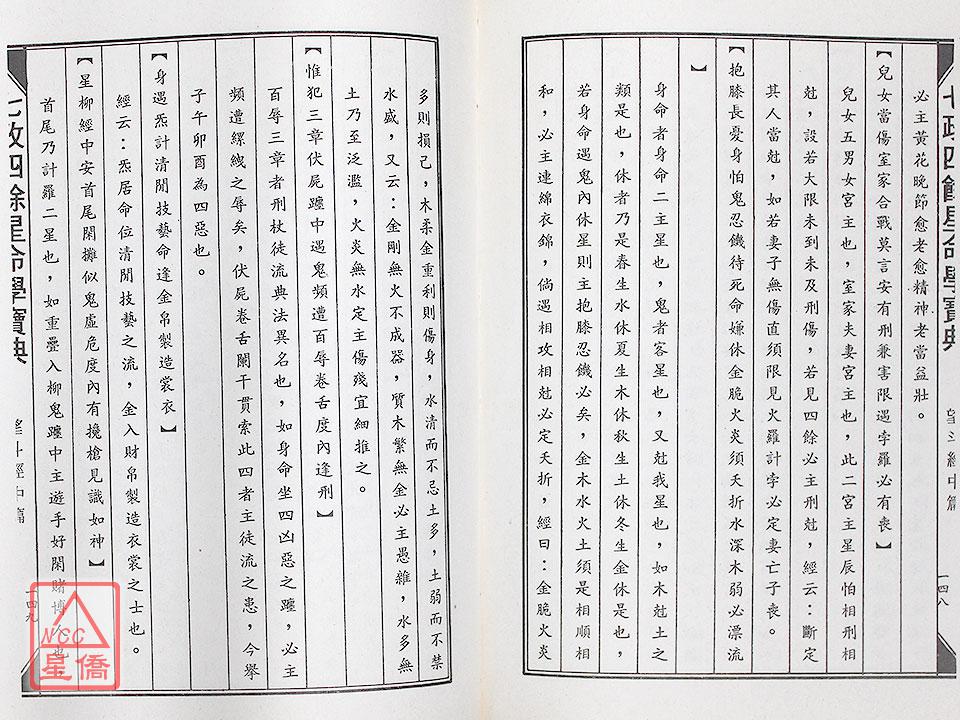 必主黃花晚節愈老愈精神老當益壯。
【兒女當傷室家合戰莫言安有刑兼害限遇孛羅必有喪】
兒女五男女宮主也，室家夫妻宮主也，此二宮主星辰怕相刑相
尅，設若大限未到未及刑傷，若見四餘必主刑尅，經云：斷定
其人當尅，如若妻子無傷直須限見火羅計孛必定妻亡子喪。
【抱膝長憂身怕鬼忍饑待死命嫌休金脆火炎須夭折水深木弱必漂流
】
身命者身命二主星也，鬼者客星也，又尅我星也，如木尅土之
類是也，休者乃是春生水休夏生木休秋生土休冬生金休是也，
若身命遇鬼內休星則主抱膝忍饑必矣，金木水火土須是相順相
和，必主連綿衣錦，倘遇相攻相尅必定夭折，經曰：金脆火炎
七政四餘星命學寶典
望斗經中篇
一四八
多則損己，木柔金重利則傷身，水清而不忌土多，土弱而不禁
水盛，又云：金剛無火不成器，質木繁無金必主愚雜，水多無
土乃至泛濫，火炎無水定主傷殘宜細推之。
【惟犯三章伏屍躔中遇鬼頻遭百辱卷舌度內逢刑】
百辱三章者刑杖徒流典法異名也，如身命坐四凶惡之躔，必主
頻遭縲絏之辱矣，伏屍卷舌闌干貫索此四者主徒流之患，今舉
子午卯酉為四惡也。
【身遇炁計清閒技藝命逢金帛製造裳衣】
經云：炁居命位清閒技藝之流，金入財帛製造衣裳之士也。
【星柳經中安首尾閑攤似鬼虛危度內有攙槍見識如神】
首尾乃計羅二星也，如重疊入柳鬼躔中主遊手好閑賭博人也，
七政四餘星命學寶典
望斗經中篇
一四九
NCC
星僑